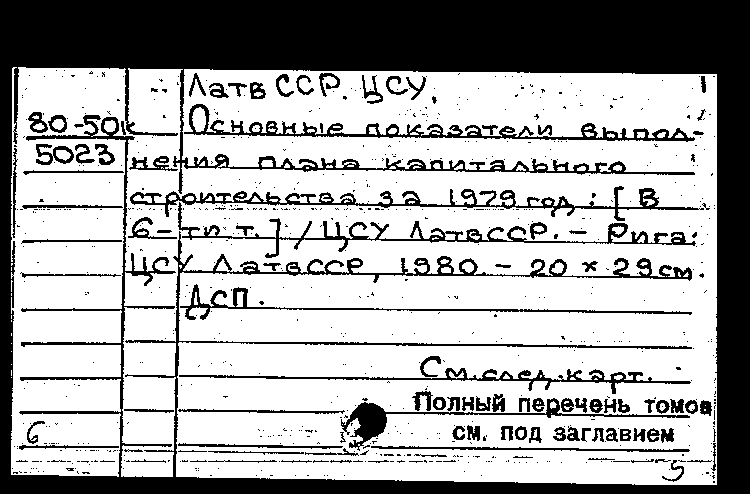 Латв ССР. ЦСУ.
80-50к
5023
Основные показатели выпол-
нения плана капитального
строительства за 1979 год : [ В
6-ти т. ] / ЦСУ ЛатвССР. – Рига:
ЦСУ ЛатвССР, 1980. – 20 × 29 см.
ДСП.
См. след. карт.
Полный перечень томов
см. под заглавием
6
5